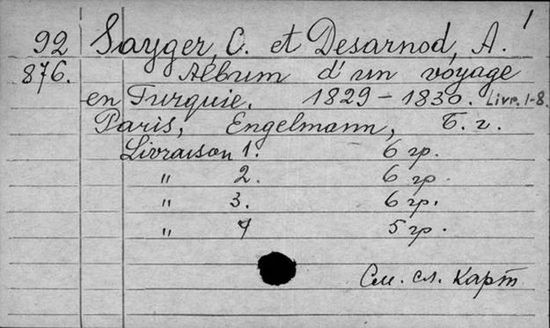 1
92 Sayger, C. et Desarnod, A.
876. Album d'un voyage
en Turquie. 1829-1830. Livr. 1-8.
Paris, Engelmann, Б. г.
Livraison 1. 6 гр.
" 2. 6 гр.
" 3. 6 гр.
" 4 5 гр.
См. сл. карт